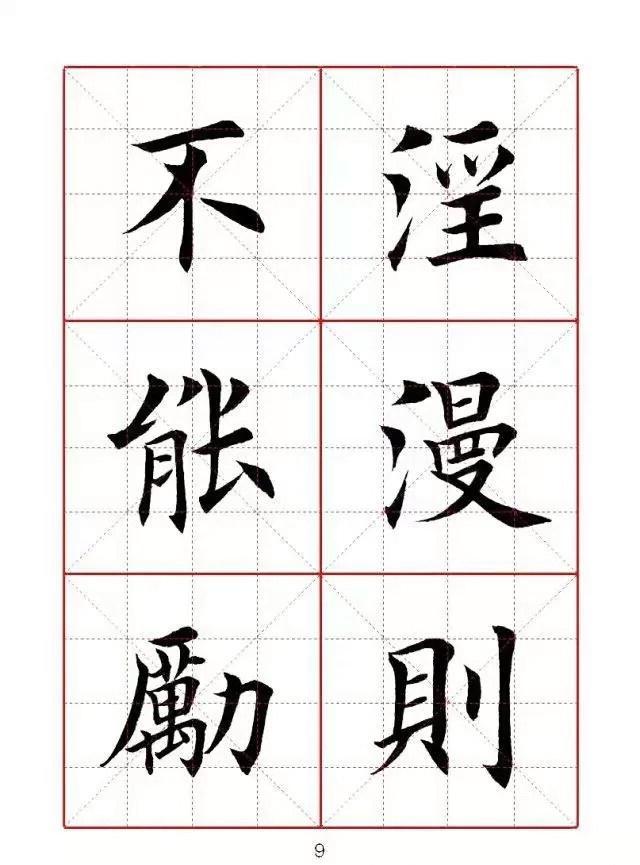 淫漫則
不能勵
9